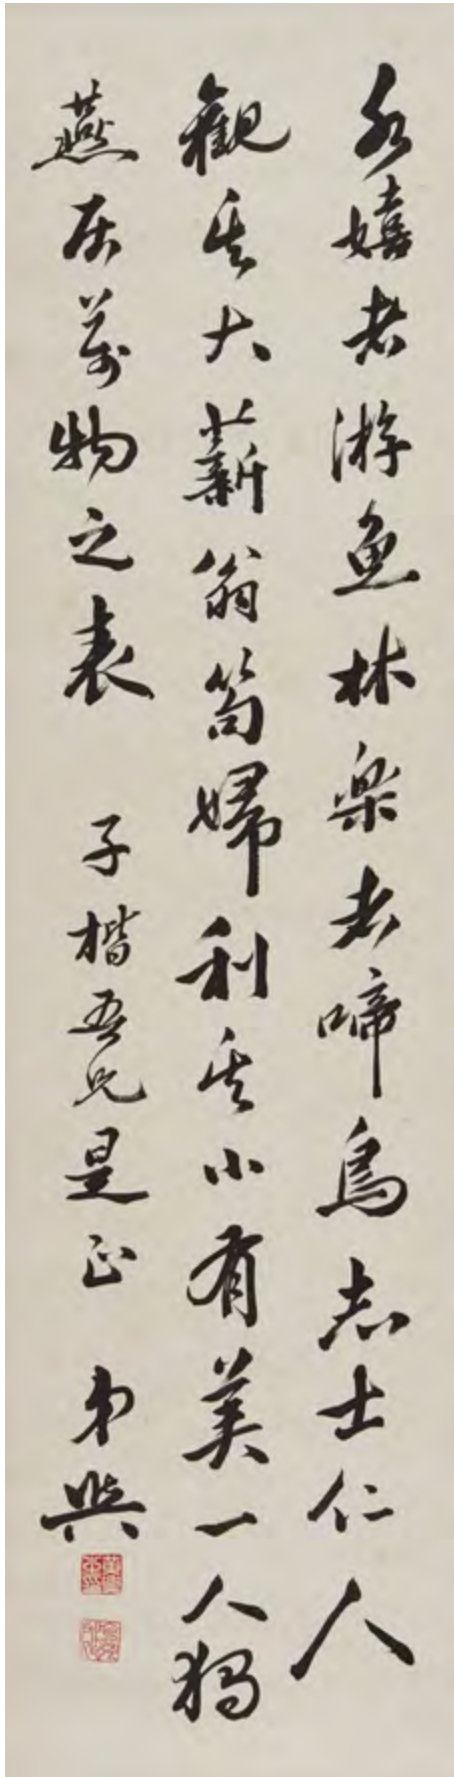 水嬉者游魚林樂者啼鳥志士仁人
觀其大薪翁笱婦利其小有美一人獨
燕居萬物之表 子楷吾兄是正 弟興